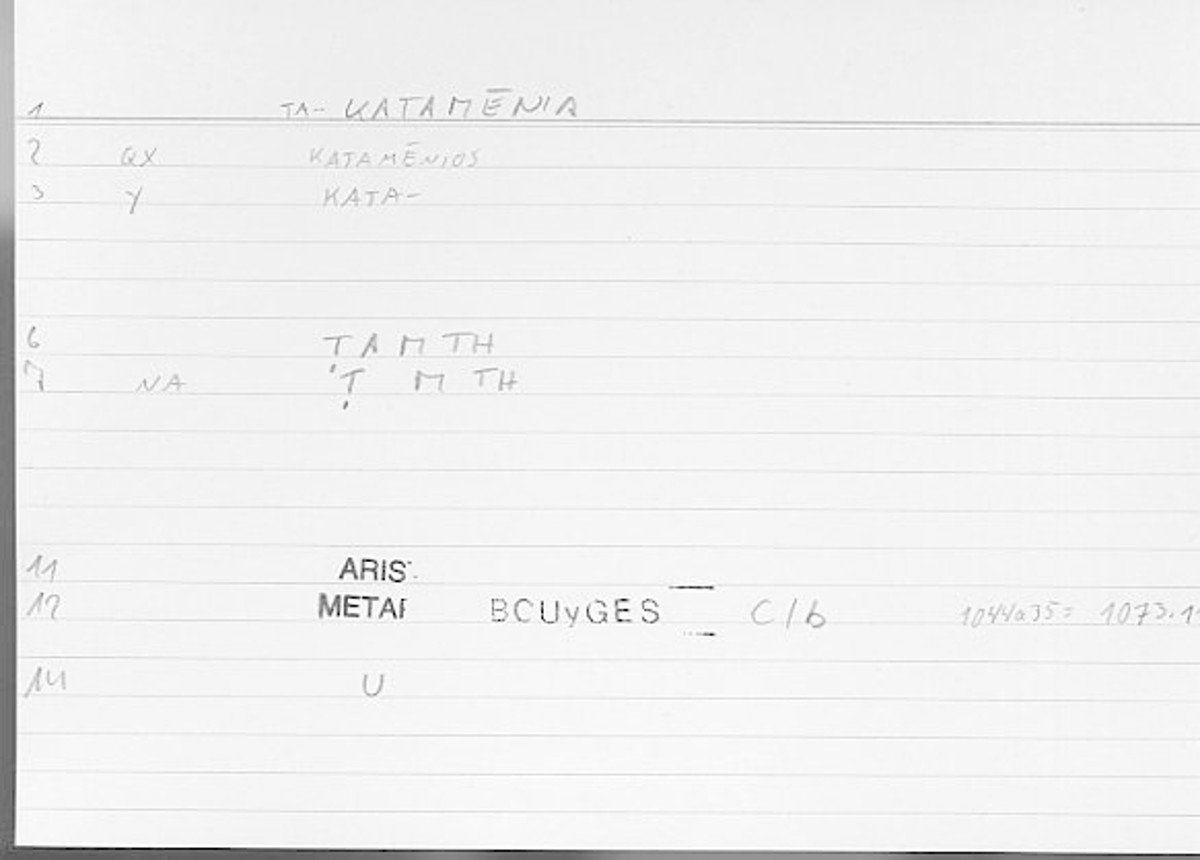 1 TA- KATAMĒNIA
2 QX KATAMĒNIOS
3 Y KATA-
6 T A M TH
7 NA 'Ṭ M TH
11 ARIS
12 METAF BCUyGES C/b 1044a35= 1073.1
14 U